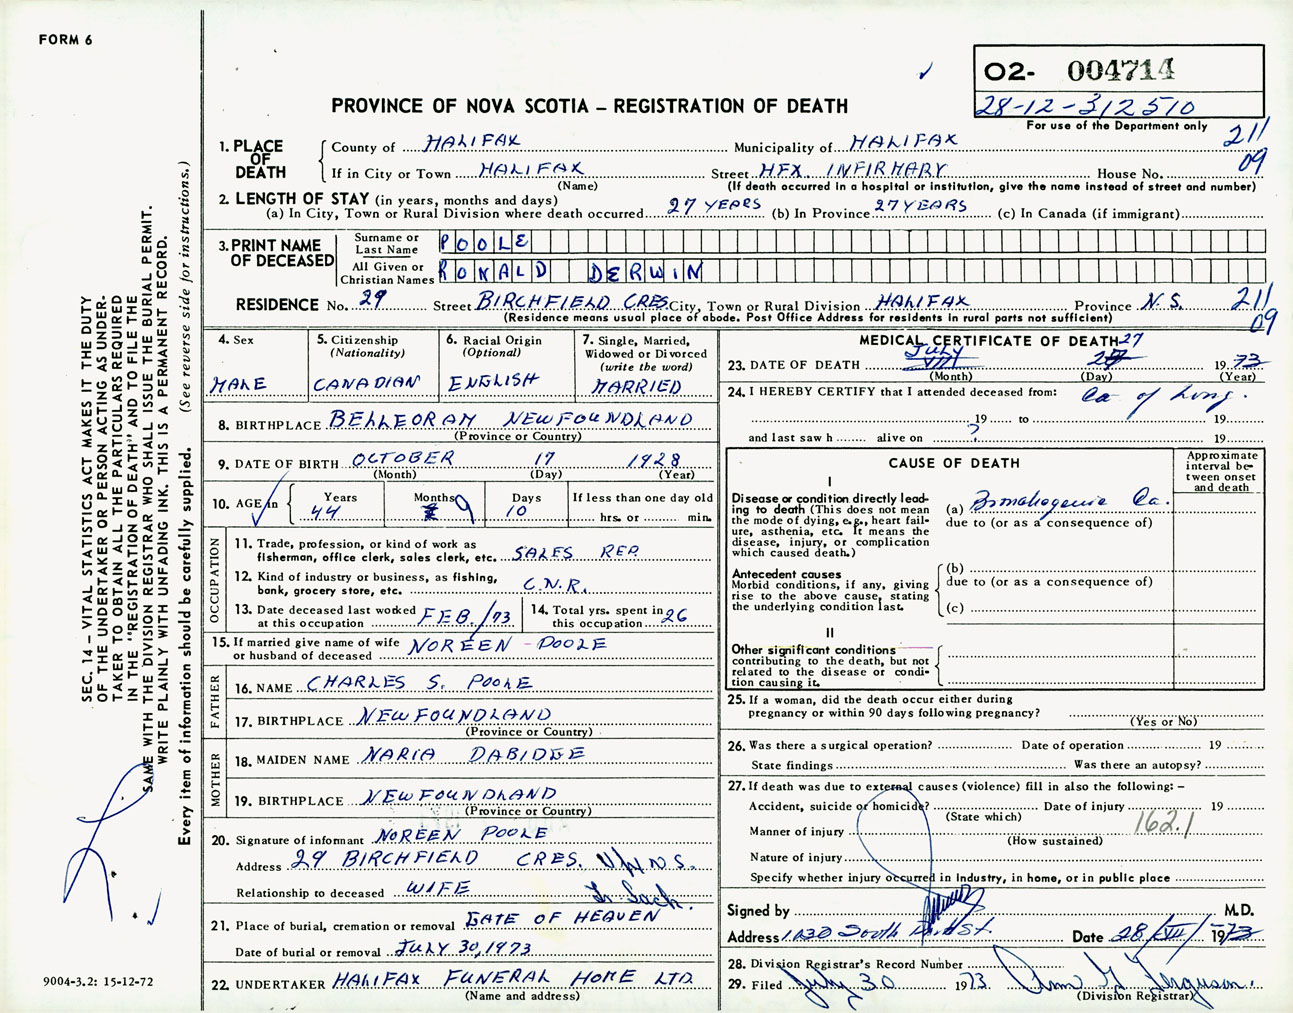 FORM 6
02- 004714
28-12-312510
For use of the Department only
PROVINCE OF NOVA SCOTIA – REGISTRATION OF DEATH
211
09
1. PLACE OF DEATH
County of HALIFAX Municipality of HALIFAX
If in City or Town HALIFAX Street HFX INFIRMARY House No.
(Name) (If death occurred in a hospital or institution, give the name instead of street and number)
2. LENGTH OF STAY (in years, months and days)
(a) In City, Town or Rural Division where death occurred 27 YEARS (b) In Province 27 YEARS (c) In Canada (if immigrant)
3. PRINT NAME OF DECEASED
Surname or Last Name POOLE
All Given or Christian Names RONALD DERWIN
RESIDENCE No. 29 Street BIRCHFIELD CRES. City, Town or Rural Division HALIFAX Province N.S.
211
09
(Residence means usual place of abode. Post Office Address for residents in rural parts not sufficient)
4. Sex
MALE
5. Citizenship (Nationality)
CANADIAN
6. Racial Origin (Optional)
ENGLISH
7. Single, Married, Widowed or Divorced (write the word)
MARRIED
8. BIRTHPLACE BELLEORAM NEWFOUNDLAND
(Province or Country)
9. DATE OF BIRTH OCTOBER 17 1928
(Month) (Day) (Year)
10. AGE in
Years 44
Months 9
Days 10
If less than one day old
hrs. or min.
OCCUPATION
11. Trade, profession, or kind of work as fisherman, office clerk, sales clerk, etc. SALES REP.
12. Kind of industry or business, as fishing, bank, grocery store, etc. C.N.R.
13. Date deceased last worked at this occupation FEB./73
14. Total yrs. spent in this occupation 26
15. If married give name of wife or husband of deceased NOREEN - POOLE
FATHER
16. NAME CHARLES S. POOLE
17. BIRTHPLACE NEWFOUNDLAND
(Province or Country)
MOTHER
18. MAIDEN NAME NARIA DABIDGE
19. BIRTHPLACE NEWFOUNDLAND
(Province or Country)
20. Signature of informant NOREEN POOLE
Address 29 BIRCHFIELD CRES. N.S.
Relationship to deceased WIFE
21. Place of burial, cremation or removal GATE OF HEAVEN
Lr Sack.
Date of burial or removal JULY 30, 1973
22. UNDERTAKER HALIFAX FUNERAL HOME LTD.
(Name and address)
MEDICAL CERTIFICATE OF DEATH
23. DATE OF DEATH JULY 27 1973
(Month) (Day) (Year)
24. I HEREBY CERTIFY that I attended deceased from: Ca of Lung.
19 to 19
and last saw h alive on ? 19
CAUSE OF DEATH
Approximate interval between onset and death
I
Disease or condition directly leading to death (This does not mean the mode of dying, e.g., heart failure, asthenia, etc. It means the disease, injury, or complication which caused death.)
(a) Bronchogenic Ca.
due to (or as a consequence of)
Antecedent causes
Morbid conditions, if any, giving rise to the above cause, stating the underlying condition last.
(b)
due to (or as a consequence of)
(c)
II
Other significant conditions
contributing to the death, but not related to the disease or condition causing it.
25. If a woman, did the death occur either during pregnancy or within 90 days following pregnancy?
(Yes or No)
26. Was there a surgical operation? Date of operation 19
State findings Was there an autopsy?
27. If death was due to external causes (violence) fill in also the following: –
Accident, suicide or homicide? Date of injury 19
(State which)
162.1
Manner of injury
(How sustained)
Nature of injury
Specify whether injury occurred in Industry, in home, or in public place
Signed by M.D.
Address 1030 South Park St. Date 28/VII/ 1973
28. Division Registrar's Record Number
29. Filed July 30 1973 Ann G. Ferguson.
(Division Registrar)
SEC. 14 – VITAL STATISTICS ACT MAKES IT THE DUTY
OF THE UNDERTAKER OR PERSON ACTING AS UNDER-
TAKER TO OBTAIN ALL THE PARTICULARS REQUIRED
IN THE "REGISTRATION OF DEATH" AND TO FILE THE
SAME WITH THE DIVISION REGISTRAR WHO SHALL ISSUE THE BURIAL PERMIT.
WRITE PLAINLY WITH UNFADING INK. THIS IS A PERMANENT RECORD.
Every item of information should be carefully supplied. (See reverse side for instructions.)
9004-3.2: 15-12-72